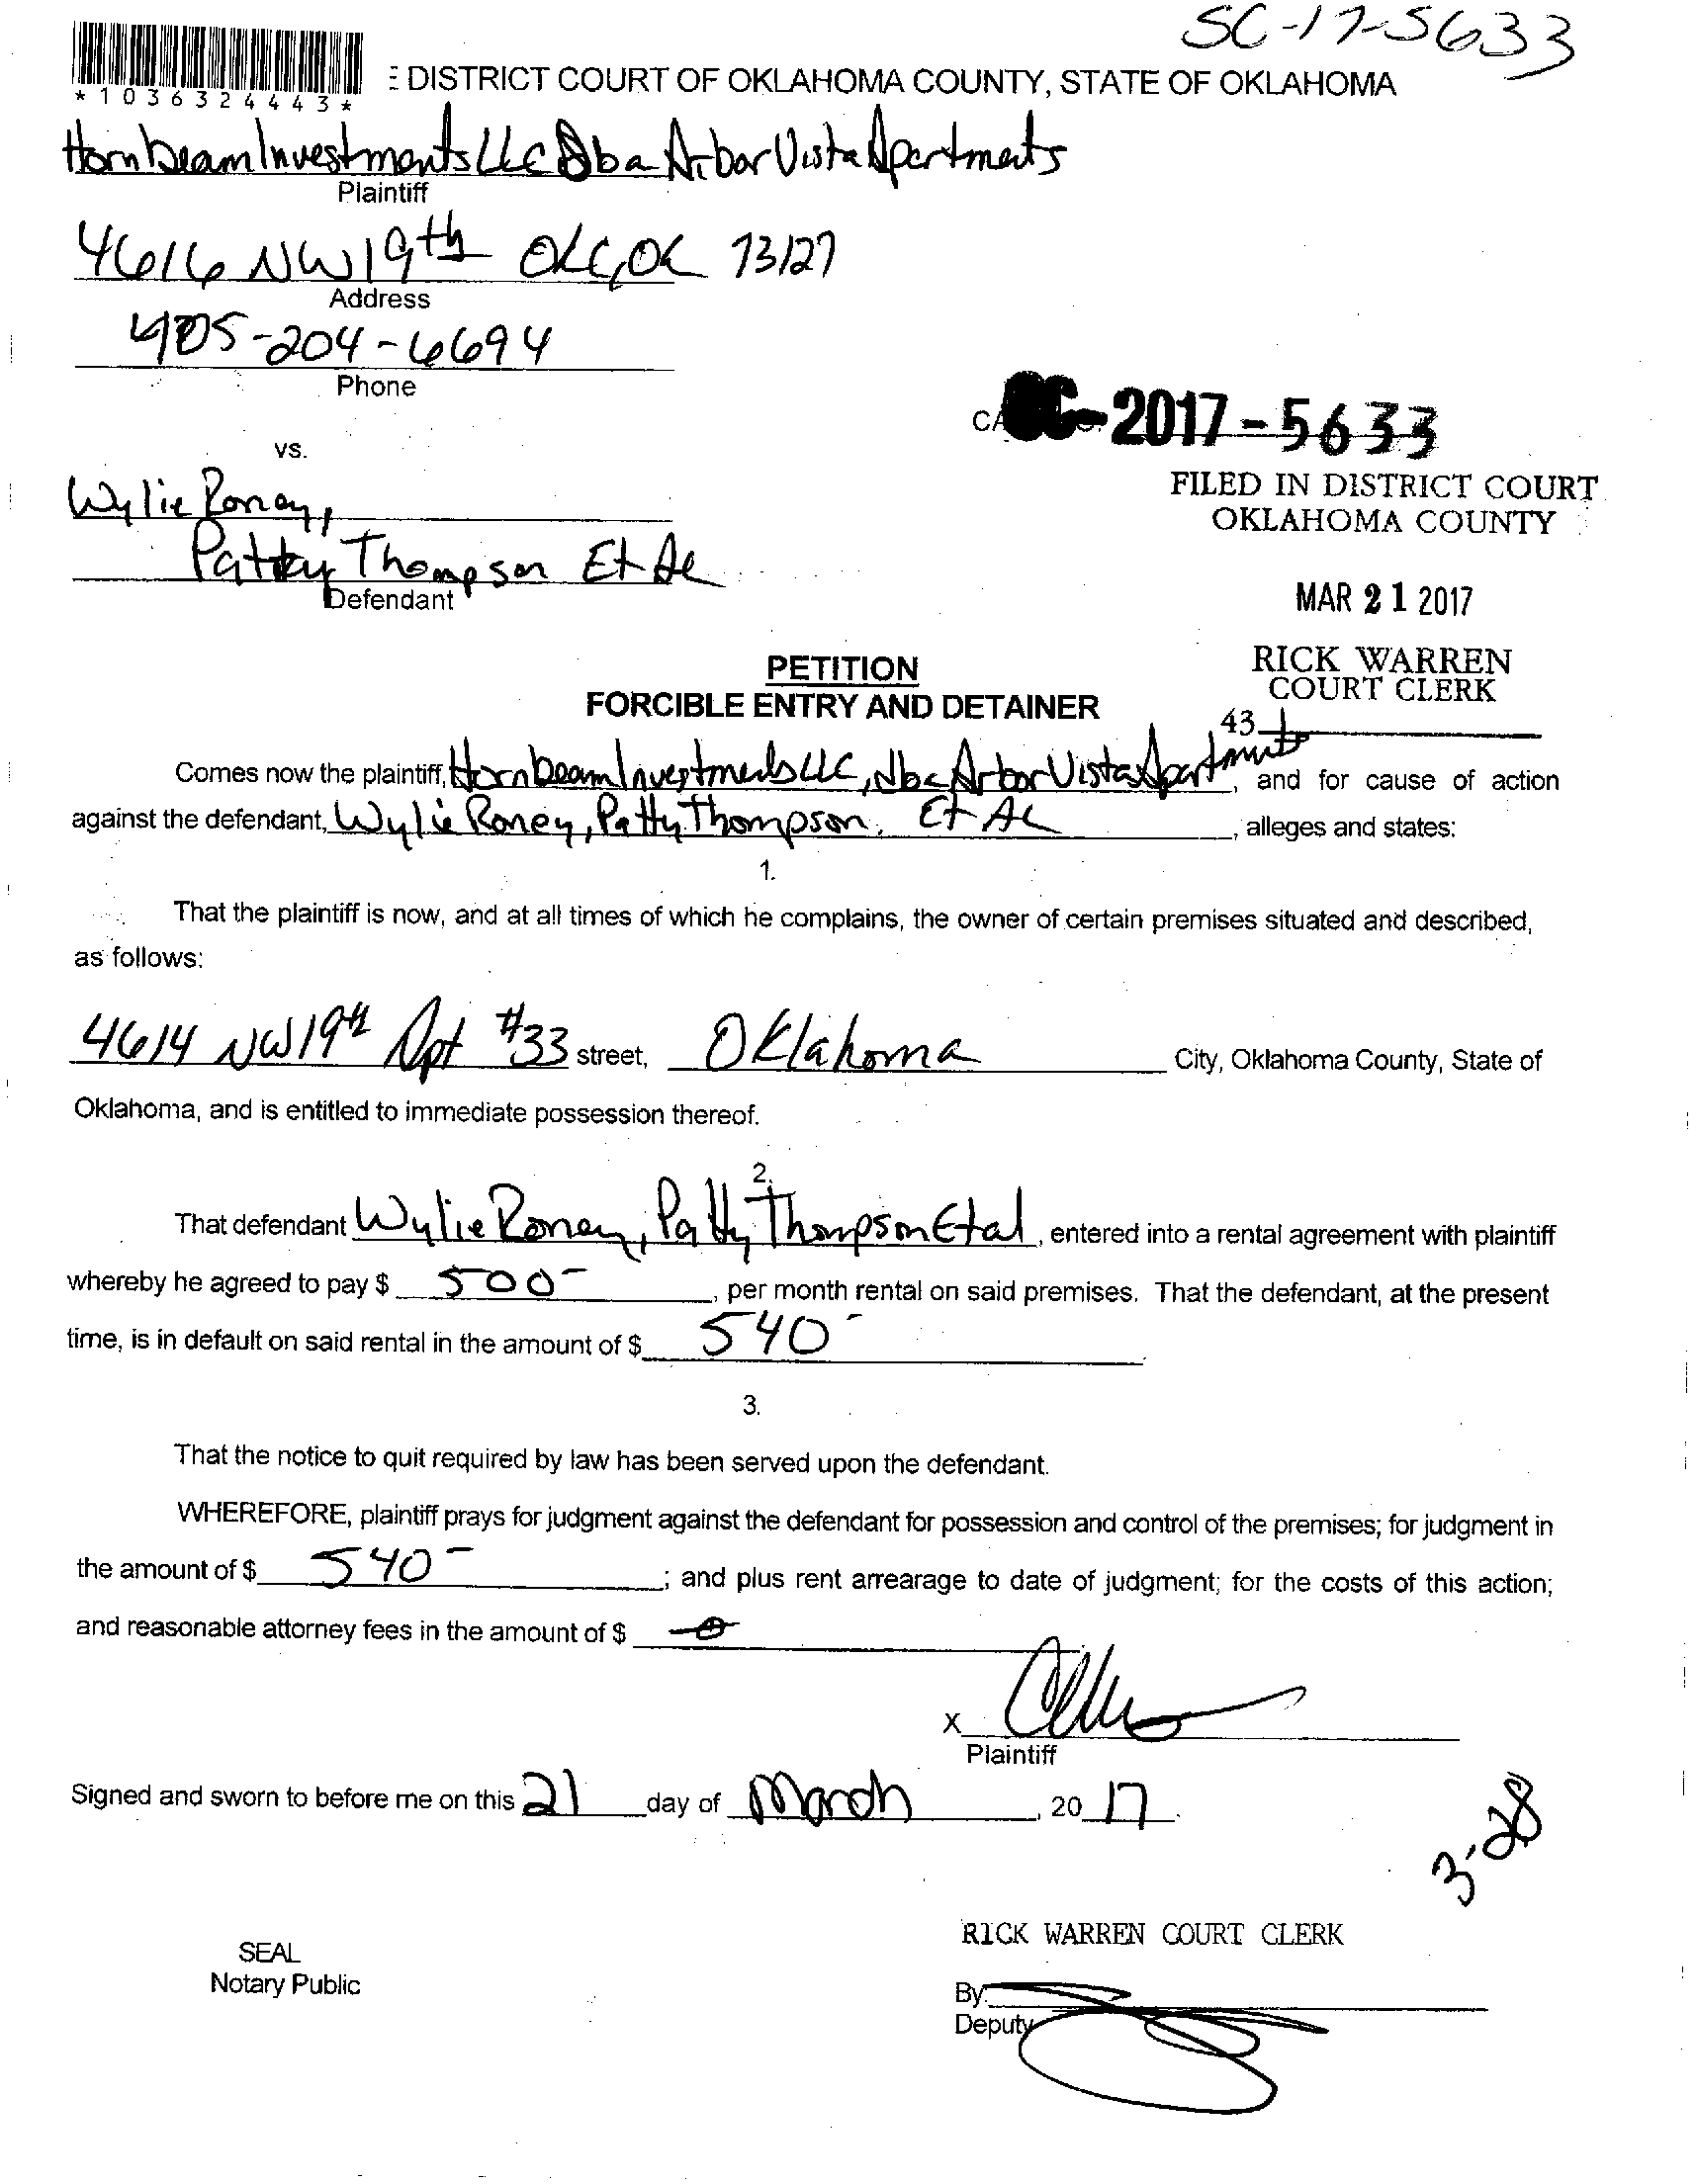 SC-17-5633
*1036324443*
E DISTRICT COURT OF OKLAHOMA COUNTY, STATE OF OKLAHOMA
Hornbeam Investments LLC Dba Arbor Vista Apartments
Plaintiff
4616 NW 19th OKC, OK 73127
Address
405-204-6694
Phone
SC-2017-5633
vs.
FILED IN DISTRICT COURT
OKLAHOMA COUNTY
Wylie Roney,
Patty Thompson Et Al
Defendant
MAR 21 2017
RICK WARREN
COURT CLERK
43
PETITION
FORCIBLE ENTRY AND DETAINER
Comes now the plaintiff, Hornbeam Investments LLC, dba Arbor Vista Apartments, and for cause of action
against the defendant, Wylie Roney, Patty Thompson, Et Al, alleges and states:
1.
That the plaintiff is now, and at all times of which he complains, the owner of certain premises situated and described,
as follows:
4614 NW 19th Apt #33 street, Oklahoma City, Oklahoma County, State of
Oklahoma, and is entitled to immediate possession thereof.
2.
That defendant Wylie Roney, Patty Thompson Et al, entered into a rental agreement with plaintiff
whereby he agreed to pay $ 500-, per month rental on said premises. That the defendant, at the present
time, is in default on said rental in the amount of $ 540-.
3.
That the notice to quit required by law has been served upon the defendant.
WHEREFORE, plaintiff prays for judgment against the defendant for possession and control of the premises; for judgment in
the amount of $ 540-; and plus rent arrearage to date of judgment; for the costs of this action;
and reasonable attorney fees in the amount of $ 0
X
Plaintiff
Signed and sworn to before me on this 21 day of March, 2017.
3-28
RICK WARREN COURT CLERK
SEAL
Notary Public
By:
Deputy